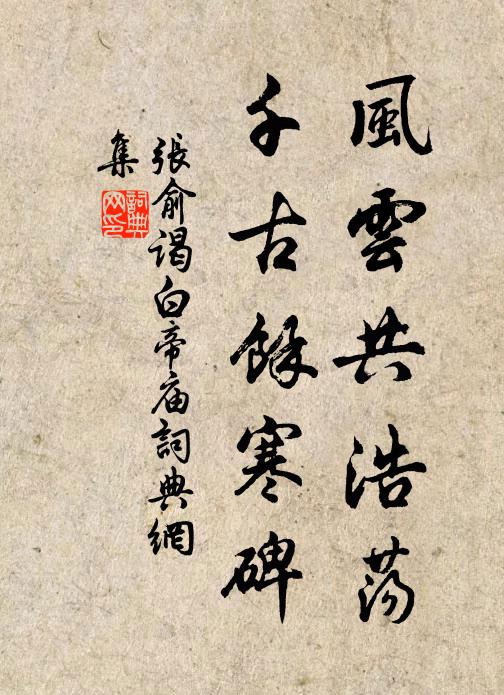 風雲共浩荡
千古餘寒碑
張俞謁白帝庙詞典網
集
詞典
网印